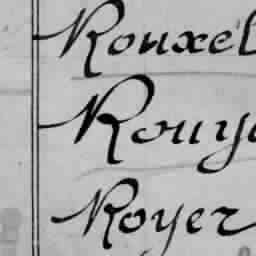 Rouxel
Rouy
Royer